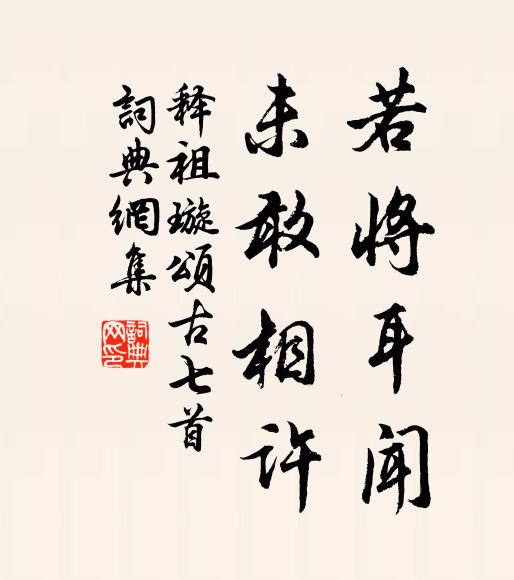 若将耳闻
未敢相许
释祖璇頌古七首
詞典網集
詞典网印